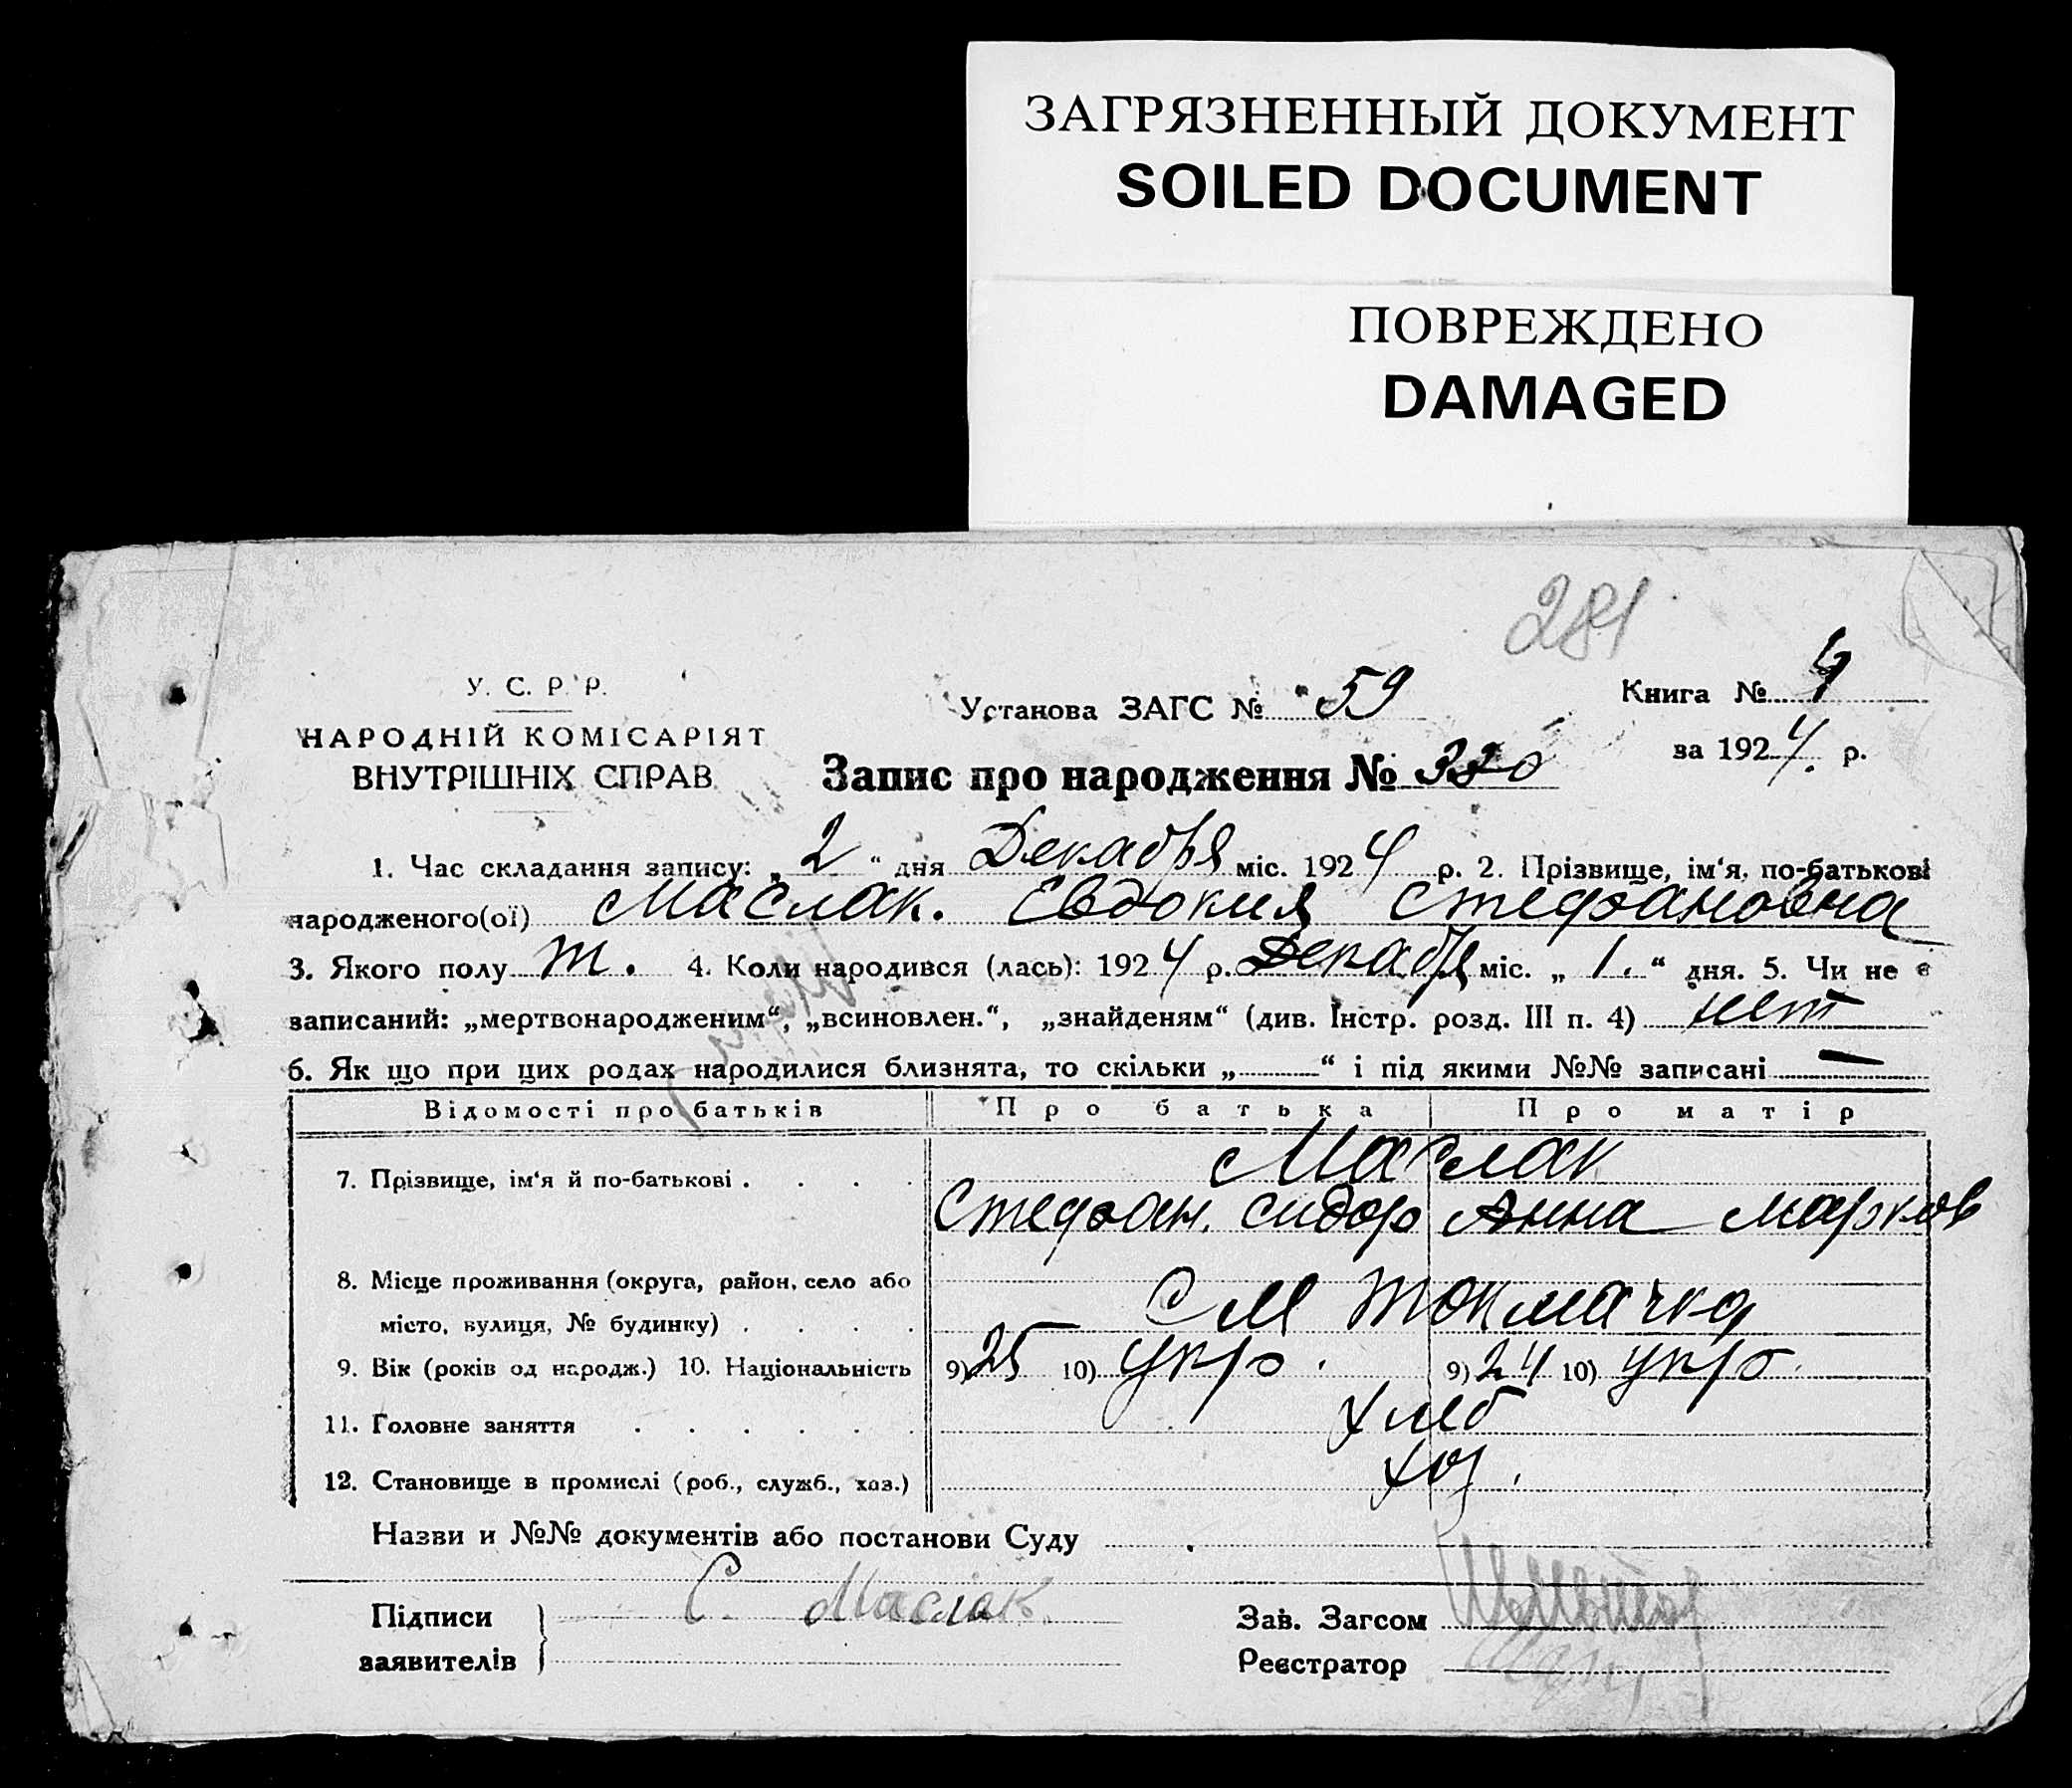 ЗАГРЯЗНЕННЫЙ ДОКУМЕНТ
SOILED DOCUMENT
ПОВРЕЖДЕНО
DAMAGED
281
У. С. Р. Р.
НАРОДНІЙ КОМІСАРІЯТ
ВНУТРІШНІХ СПРАВ
Установа ЗАГС № 59
Книга № 4
за 1924. р.
Запис про народження № 380
1. Час складання запису: „ 2 “ дня Декабря міс. 1924 р. 2. Прізвище, ім‘я, по-батькові
народженого(ої) Маслак. Евдокия Стефановна
3. Якого полу ж. 4. Коли народився (лась): 1924 р. Декабря міс. „ 1. “ дня. 5. Чи не є
записаний: „мертвонародженим“, „всиновлен.“, „знайденям“ (див. Інстр. розд. III п. 4) нет
6. Як що при цих родах народилися близнята, то скільки „ “ і під якими №№ записані —
Відомості про батьків Про батька Про матір
7. Прізвище, ім‘я й по-батькові . . . . Маслак
Стефан. Сидор Анна Марков
8. Місце проживання (округа, район, село або
місто, вулиця, № будинку) . . . . С М Токмачка
9. Вік (років од народж.) 10. Національність 9) 25 10) укр. 9) 24 10) укр.
11. Головне заняття . . . . . . хлеб
12. Становище в промислі (роб., служб., хаз.) хоз.
Назви и №№ документів або постанови Суду
Підписи
заявителів
С. Маслак
Зав. Загсом
Реєстратор